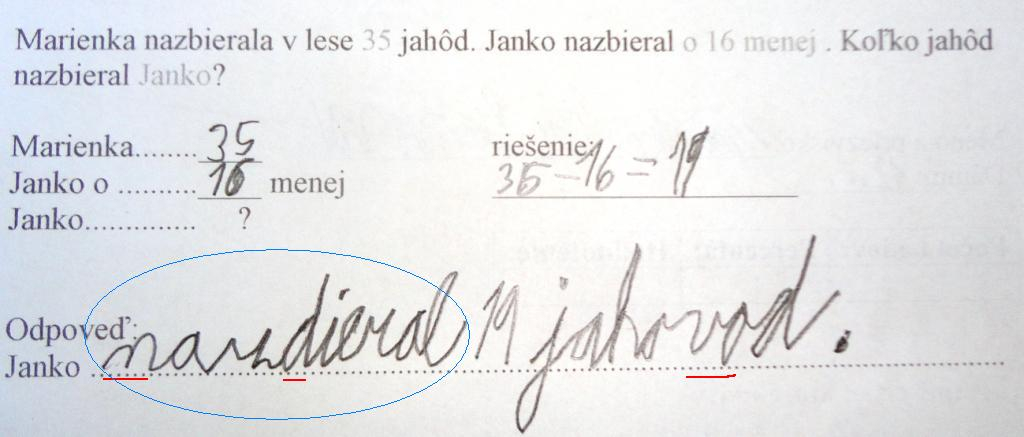 Marienka nazbierala v lese 35 jahôd. Janko nazbieral o 16 menej . Koľko jahôd
nazbieral Janko?
Marienka........ 35 riešenie:
Janko o .......... 16 menej 35 - 16 = 19
Janko.............. ?
Odpoveď:
Janko narzdieral 19 jahovod.